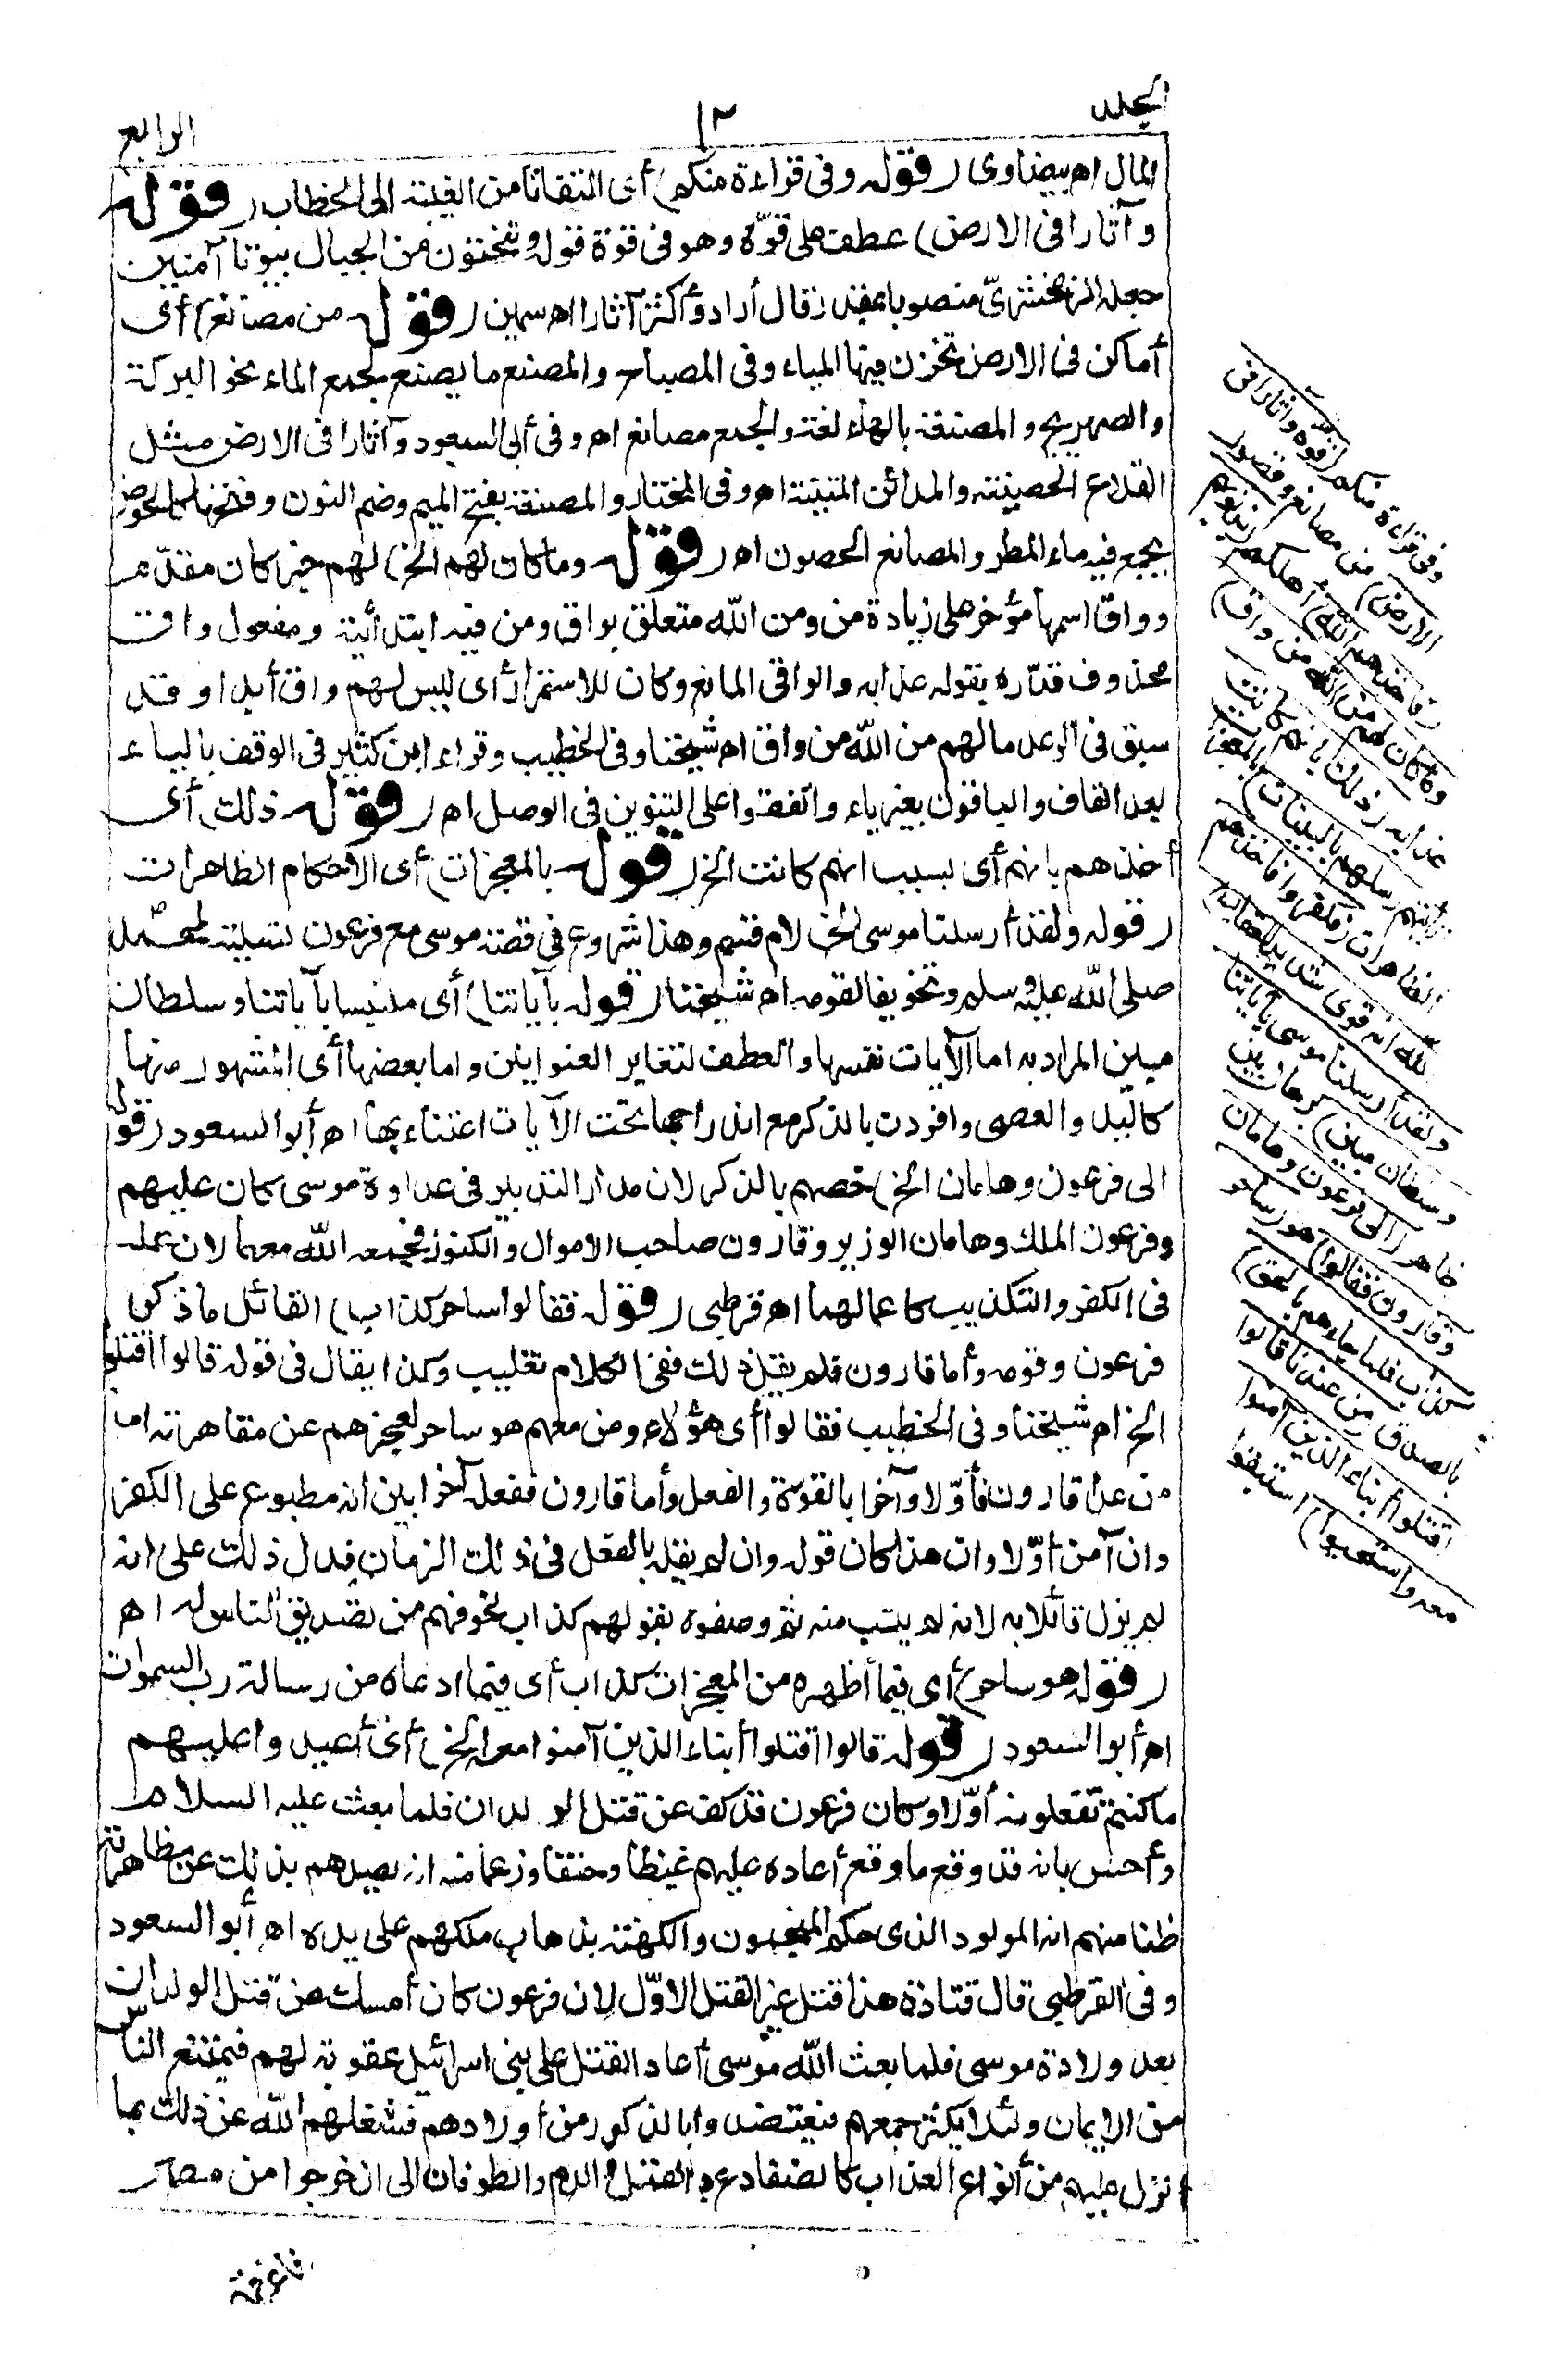 الجلد
١٢
الرابع
المال اه بيضاوى (قوله وفى قراءة منكم) أى التفاتا من الغيبة الى الخطاب (قوله
وآثارا فى الارض) عطف على قوّة وهو فى قوّة قوله وتنحتون من الجبال بيوتا آمنين
جعله الزمخشرىّ منصوبا بمقدر قال أرادوأكثر آثارا اه سمين (قوله من مصانع) أى
أماكن فى الارض تخزن فيها المياه وفى المصباح والمصنع ما يصنع لجمع الماء نحو البركة
والصهريج والمصنعة بالهاء لغة والجمع مصانع اه وفى أبى السعود وآثارا فى الارض مثل
القلاع الحصينة والمدائن المتينة اه وفى المختار والمصنعة بفتح الميم وضم النون وفتحها كالحوض
يجمع فيه ماء المطر والمصانع الحصون اه (قوله وما كان لهم الخ) لهم خبر كان مقدّم
وواق اسمها مؤخر على زيادة من ومن الله متعلق بواق ومن فيه ابتدائية ومفعول واق
محذوف قدّره بقوله عذابه والواقى المانع وكان للاستمرار أى ليس لهم واق أبدا وقد
سبق فى الرعد مالهم من الله من واق اه شيخنا وفى الخطيب وقراء ابن كثير فى الوقف بالياء
بعد القاف والباقون بغير ياء واتفقوا على التنوين فى الوصل اه (قوله ذلك) أى
أخذهم بانهم أى بسبب انهم كانت الخ (قوله بالمعجزات) أى الاحكام الظاهرات
(قوله ولقد أرسلنا موسى الخ) لام قسم وهذا شروع فى قصة موسى مع فرعون تسلية لمحمد
صلى الله عليه وسلم وتخويفا لقومه اه شيخنا (قوله بآياتنا) أى ملتبسا بآياتنا وسلطان
مبين المراد به اما الآيات نفسها والعطف لتغاير العنوانين واما بعضها أى المشهور منها
كاليد والعصى وافردت بالذكر مع اندراجها تحت الآيات اعتناء بها اه أبو السعود (قوله
الى فرعون وهامان الخ) خصهم بالذكر لان مدار التدبير فى عداوة موسى كان عليهم
وفرعون الملك وهامان الوزير وقارون صاحب الاموال والكنوز فجمعه الله معهما لان عمله
فى الكفر والتكذيب كاعمالهما اه قرطبى (قوله فقالوا ساحر كذاب) القائل ماذكر
فرعون وقومه وأما قارون فلم يقل ذلك ففى الكلام تغليب وكذا يقال فى قوله قالوا اقتلوا
الخ اه شيخنا وفى الخطيب فقالوا أى هؤلاء ومن معهم هو ساحر لعجزهم عن مقاهرته اما
من عدا قارون فأوّلا وآخرا بالقوّة والفعل وأما قارون ففعله آخرا بين انه مطبوع على الكفر
وان آمن أوّلا وان هذا كان قوله وان لم يقله بالفعل فى ذلك الزمان فدل ذلك على انه
لم يزل قائلا به لانه لم يتب منه ثم وصفوه بقولهم كذاب لخوفهم من تصديق الناس له اه
(قوله هو ساحر) أى فيما أظهره من المعجزات كذاب أى فيما ادعاه من رسالة رب السموات
اه أبو السعود (قوله قالوا اقتلوا أبناء الذين آمنوا معه الخ) أى أعيدوا عليهم
ما كنتم تفعلونه أوّلا وكان فرعون قد كف عن قتل الولدان فلما بعث عليه السلام
وأحس بانه قد وقع ما وقع أعاده عليهم غيظا وحنقا وزعما منه انه يصدهم بذلك عن مظاهرته
ظنا منهم انه المولود الذى حكم المنجمون والكهنة بذهاب ملكهم على يده اه أبو السعود
وفى القرطبى قال قتادة هذا قتل غير القتل الاوّل لان فرعون كان أمسك عن قتل الولدان
بعد ولادة موسى فلما بعث الله موسى أعاد القتل على بنى اسرائيل عقوبة لهم فيمتنع الناس
من الايمان ولئلا يكثر جمعهم فيعتضدوا بالذكور من أولادهم فشغلهم الله عن ذلك بما
نزل عليهم من أنواع العذاب كالضفادع والقمل والدم والطوفان الى ان خرجوا من مصر
وفى قراءة منكم (قوّة وآثارا فى
الارض) من مصانع وقصور
(فاخذهم الله) أهلكهم (بذنوبهم
وما كان لهم من الله من واق)
عذابه (ذلك بانهم كانت
تأتيهم رسلهم بالبينات) بالمعجزات
الظاهرات (فكفروا فاخذهم
الله انه قوى شديد العقاب)
ولقد أرسلنا موسى بآياتنا
وسلطان مبين) برهان بين
ظاهر (الى فرعون وهامان
وقارون فقالوا) هو (ساحر
كذاب فلما جاءهم بالحق)
بالصدق (من عندنا قالوا
اقتلوا أبناء الذين آمنوا
معه واستحيوا) استبقوا